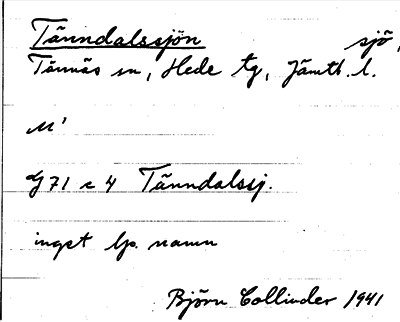 Tänndalssjön sjö,
Tännäs sn, Hede tg, Jämtl. l.
M'
G 71 c 4 Tänndalssj.
inget lp. namn
Björn Collinder 1941